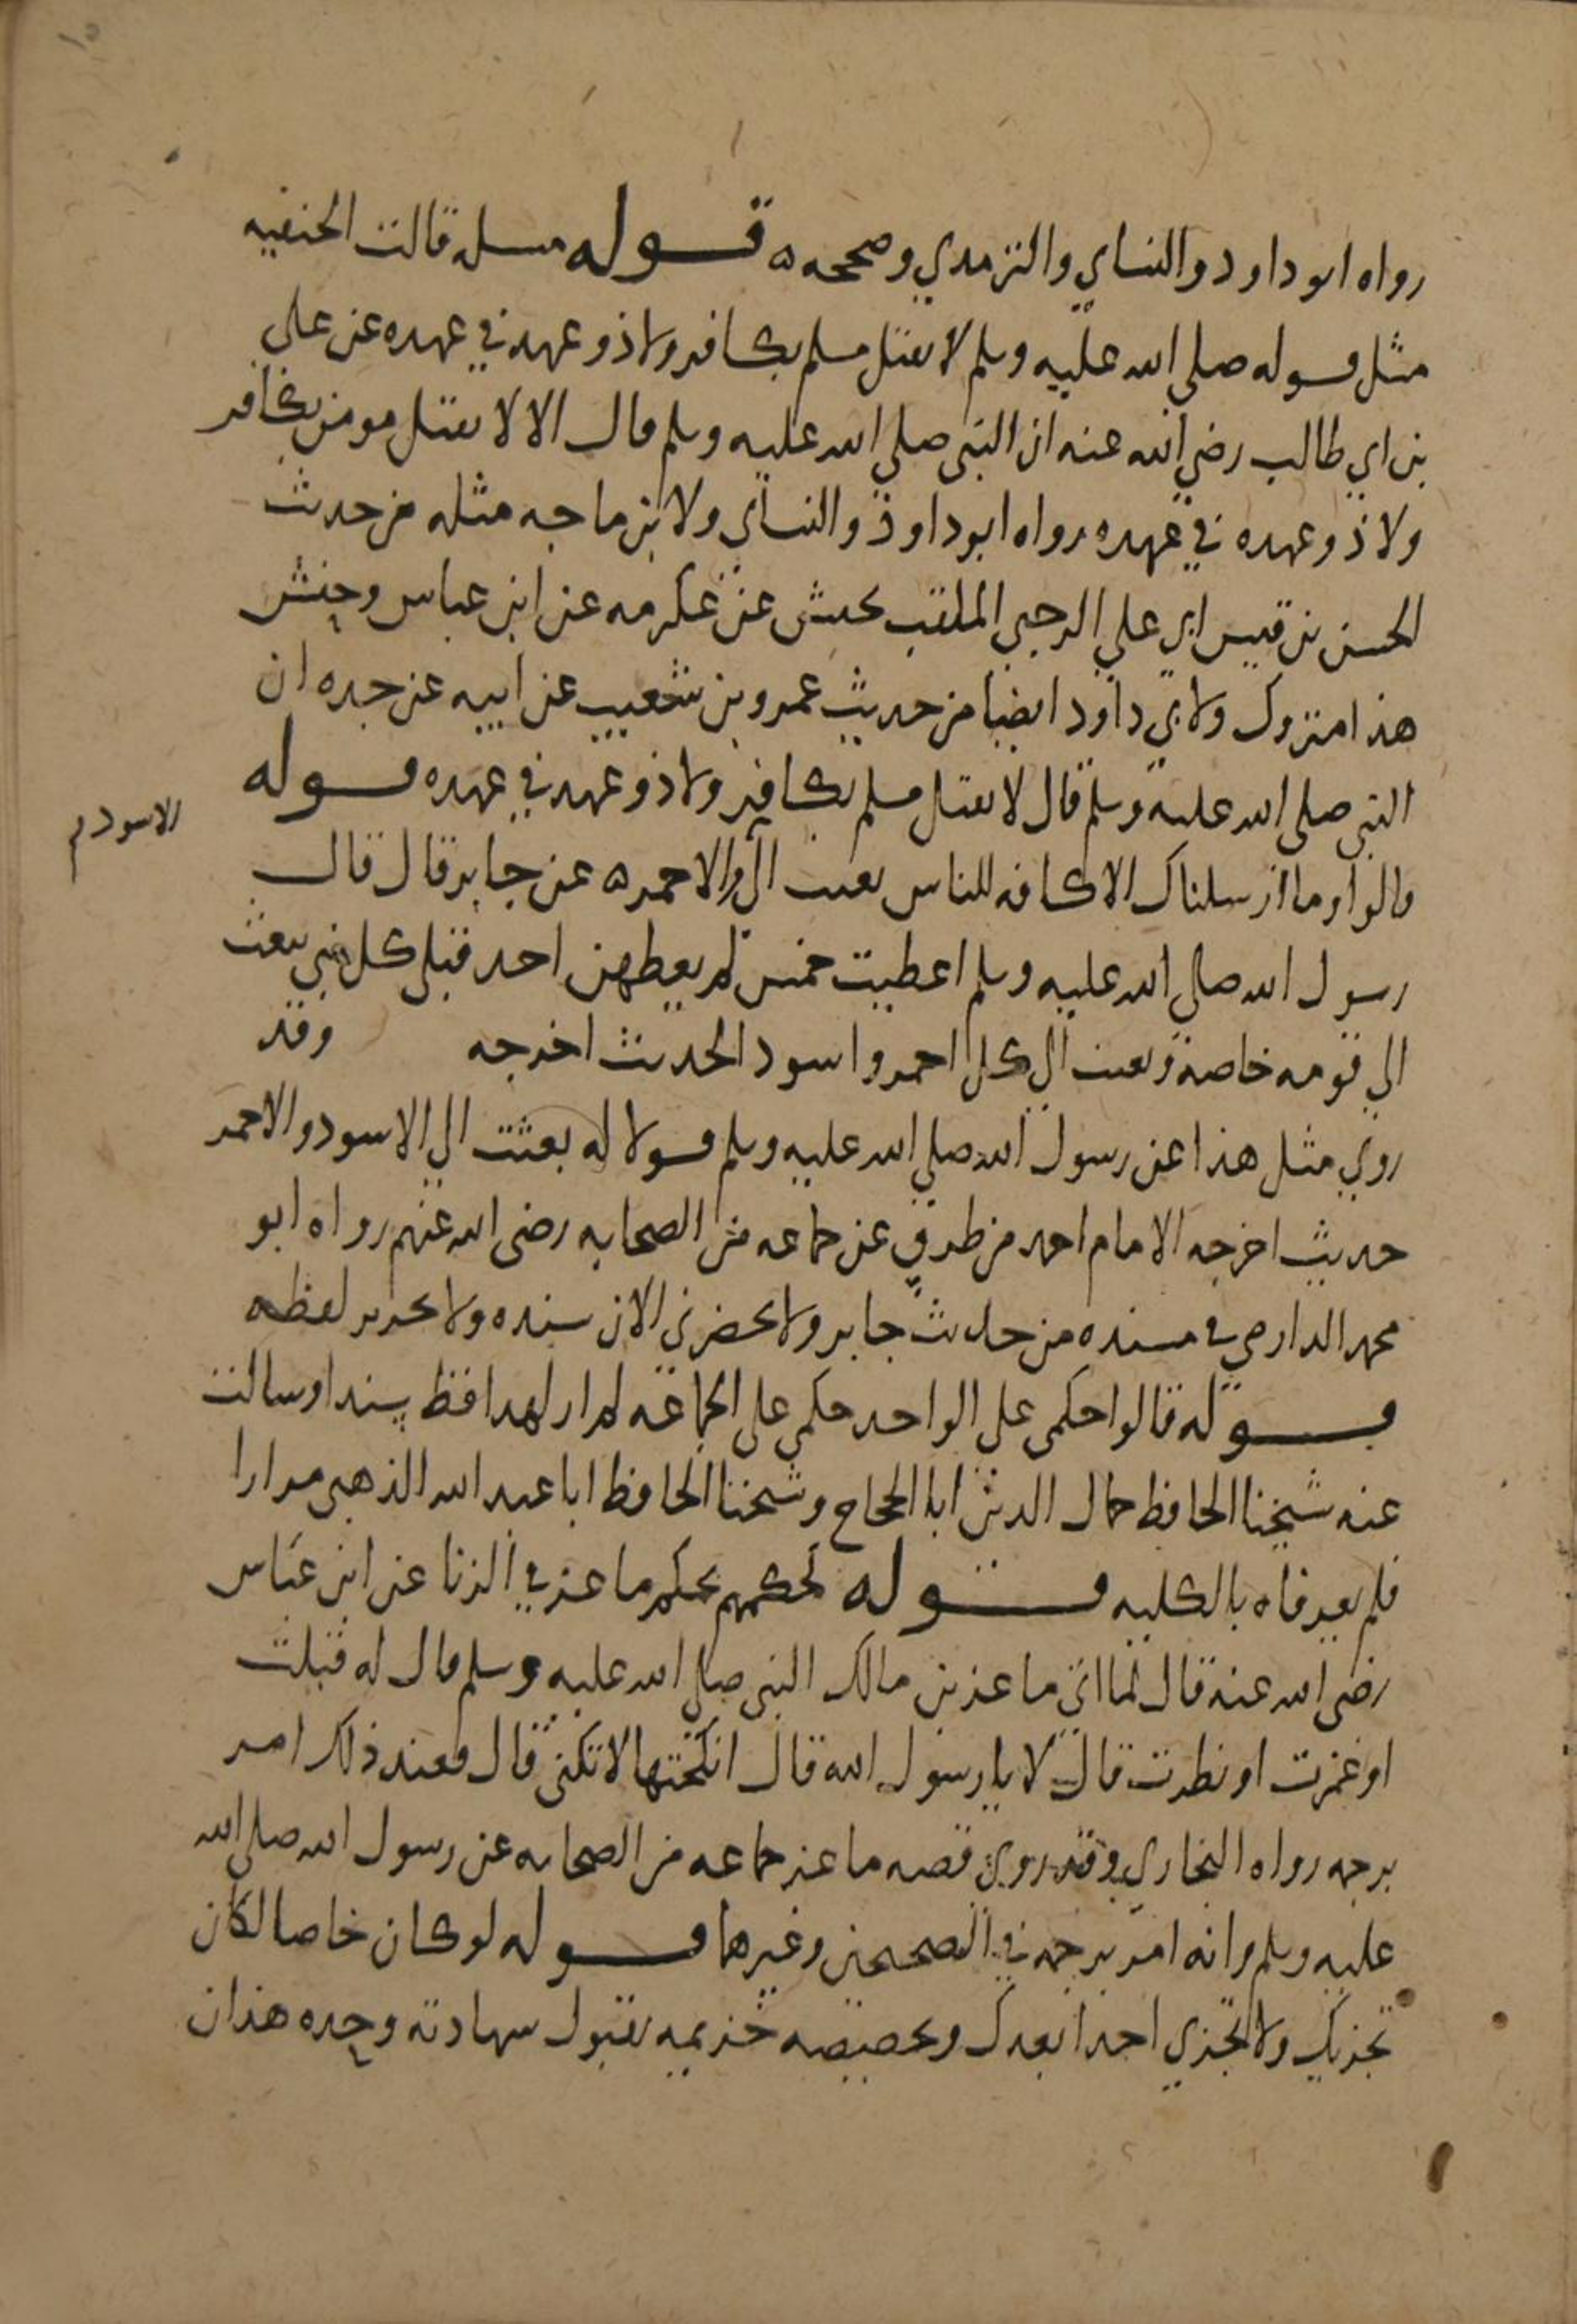 رواه ابو داود والنساي والترمذي وصححه ه قوله مسله قالت الحنفيه
مثل قوله صلى الله عليه وسلم لا يقتل مسلم بكافر ولا ذو عهد في عهده عن علي
بن ابي طالب رضي الله عنه ان النبي صلى الله عليه وسلم قال الا لا يقتل مومن بكافر
ولا ذو عهده في عهده رواه ابو داود والنساي ولابن ماجه مثله من حديث
الحسن بن قيس ابي علي الرحبي الملقب بحنش عن عكرمه عن ابن عباس وحنش
هذا متروك ولابي داود ايضا من حديث عمرو بن شعيب عن ابيه عن جده ان
النبي صلى الله عليه وسلم قال لا يقتل مسلم بكافر ولا ذو عهد في عهده قوله
قالوا وما ارسلناك الا كافه للناس بعثت الى والاحمر ه عن جابر قال قال
الاسود م
رسول الله صلى الله عليه وسلم اعطيت خمس لم يعطهن احد قبلي كل نبي يبعث
الي قومه خاصة وبعثت الى كل احمر واسود الحديث اخرجه وقد
روي مثل هذا عن رسول الله صلي الله عليه وسلم قولا له بعثت الي الاسود والاحمر
حديث اخرجه الامام احمد من طرق عن جماعه من الصحابه رضى الله عنهم رواه ابو
محمد الدارمي في مسنده من حديث جابر ولا يحضرني الان سنده ولا تحرير لفظه
قوله قالوا حكمى على الواحد حكمي على الجماعة لم ار لهذا قط سندا وسالت
عنه شيخنا الحافظ جمال الدين ابا الحجاج وشيخنا الحافظ ابا عبد الله الذهبي مرارا
فلم يعرفاه بالكليه قوله لحكمهم بحكم ماعز في الزنا عن ابن عباس
رضى الله عنه قال لما اتى ماعز بن مالك النبي صلى الله عليه وسلم قال له قبلت
او غمزت او نظرت قال لا يا رسول الله قال انكحتها لا تكنى قال فعند ذلك امر
برجمه رواه البخاري وقد روي قصه ماعز جماعه من الصحابه عن رسول الله صلى الله
عليه وسلم وانه امر برجمه في الصحيحين وغيرهما قوله لو كان خاصا لكان
تجزيك ولا تجزي احدا بعدك وتخصيصه خزيمه بقبول شهادته وحده هذان